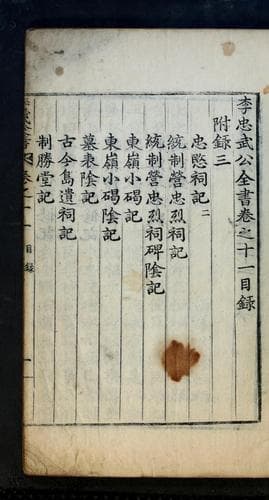 李忠武公全書卷之十一目録
附録三
忠愍祠記二
統制營忠烈祠記
統制營忠烈祠碑陰記
東嶺小碣記
東嶺小碣陰記
墓表陰記
古今島遺祠記
制勝堂記
全書 卷之十一 目録 一